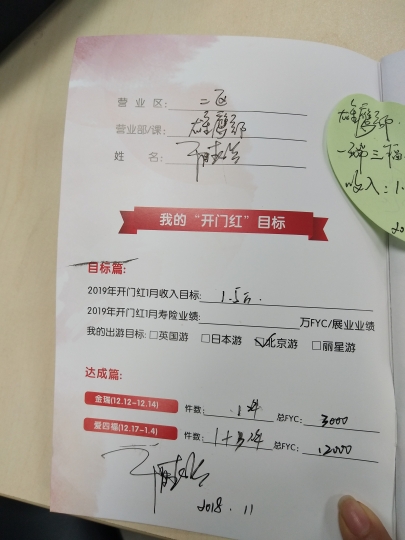 营业区: 二区
营业部/课: 雄鹰部
姓名:
我的“开门红”目标
目标篇:
2019年开门红1月收入目标: 1.5万.
2019年开门红1月寿险业绩: 万FYC/展业业绩
我的出游目标: □英国游 □日本游 ☑北京游 □丽星游
达成篇:
金瑞(12.12-12.14) 件数: 1件 总FYC: 3000
爱四福(12.17-1.4) 件数: 总FYC: 12000
2018.11
雄鹰部.
收入:1.